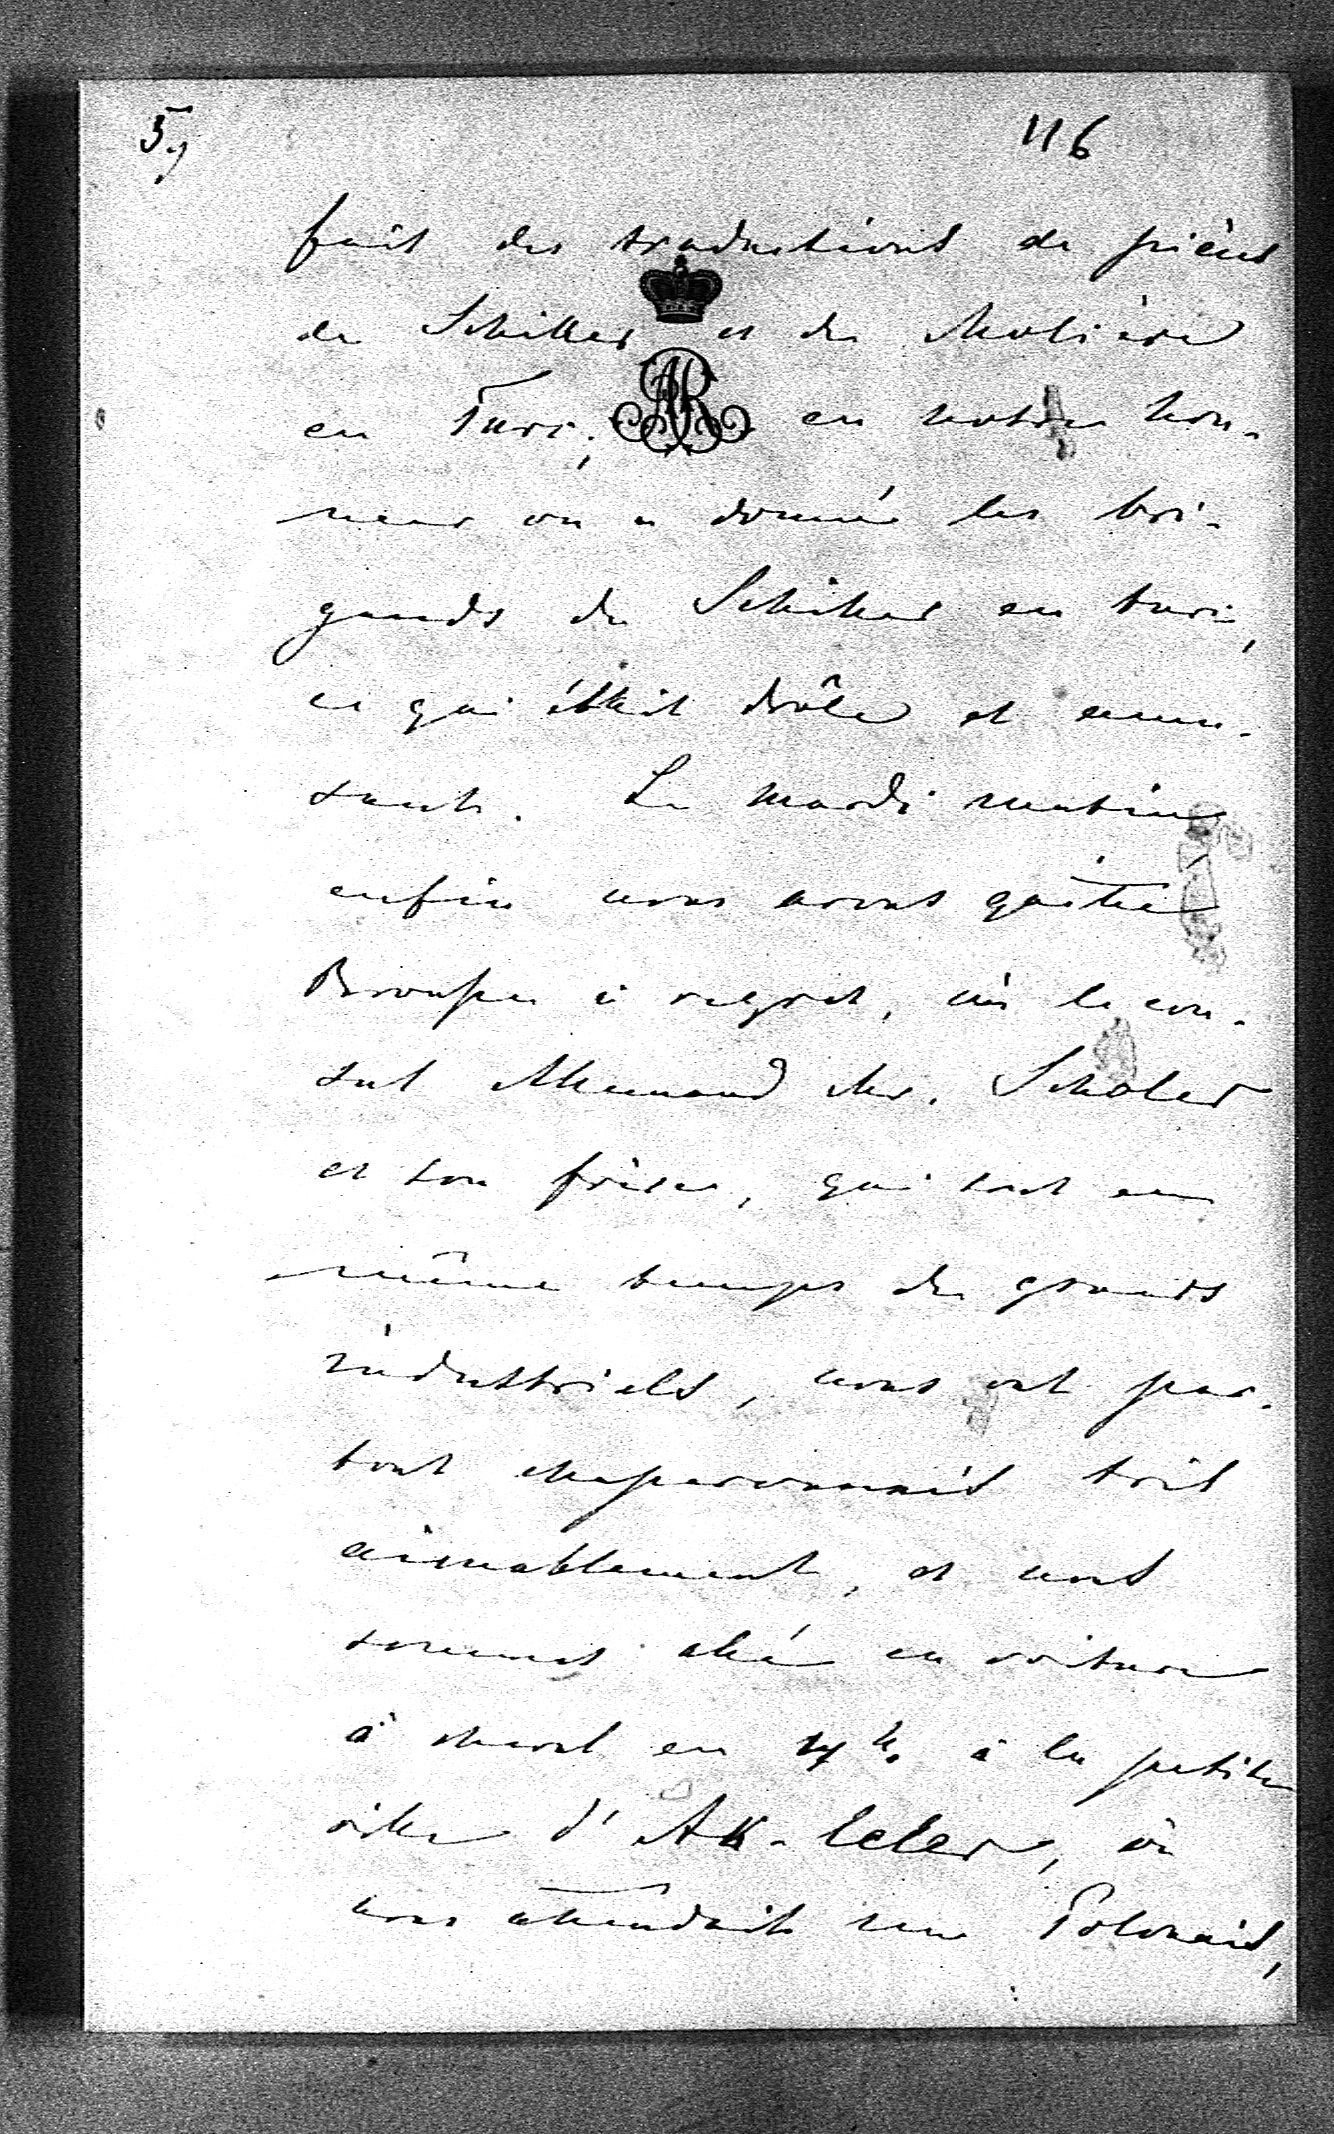 5.,
116
fait des traductions de pièces
de Schiller et de Molière
en Turc; en notre hon-
neur on a donné les bri-
gands de Schiller en turc,
ce qui était drôle et amu-
sant. Le mardi matin
enfin nous avons quitté
Brousse à regret, où le con-
sul Allemand Mr. Scholer
et son frère, qui sont en
même temps de grands
industriels, nous ont par-
tout chaperonnés très
aimablement, et nous
sommes allé en voiture
à cheval en 4 h. à la petite
ville d'Ak-
où
nous attendait un Polonais,